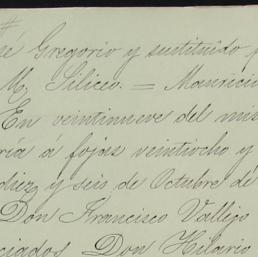 sé Gregorio y sustituido p
M. Siliceo. = Mauricio
En veintinueve del mis
ría á fojas veintiocho y
diez y seis de Octubre de
Don Francisco Vallejo
ciados Don Hilario